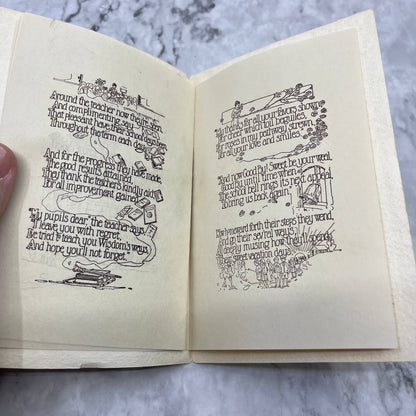 Around the teacher now they listen,
And complimenting say,
That pleasant have their School days been
Throughout the term each day.
And for the progress they have made,
The good results attained,
They thank the teacher's kindly aid
For all improvement gained.
"My pupils dear," the teacher says,
"I leave you with regret,
I've tried to teach you Wisdom's ways
And hope you'll not forget.
"My thanks for all your favors shown,
For cheer which toil beguiles,
For roses in my pathway strewn,
For all your love and smiles.
"And now Good Bye! Sweet be your
Good bye until time when
The school bell rings its next appeal
To bring us back again."
forth their steps they wend,
And go their several ways
All deeply musing how they'll spend
Their sweet vacation days.